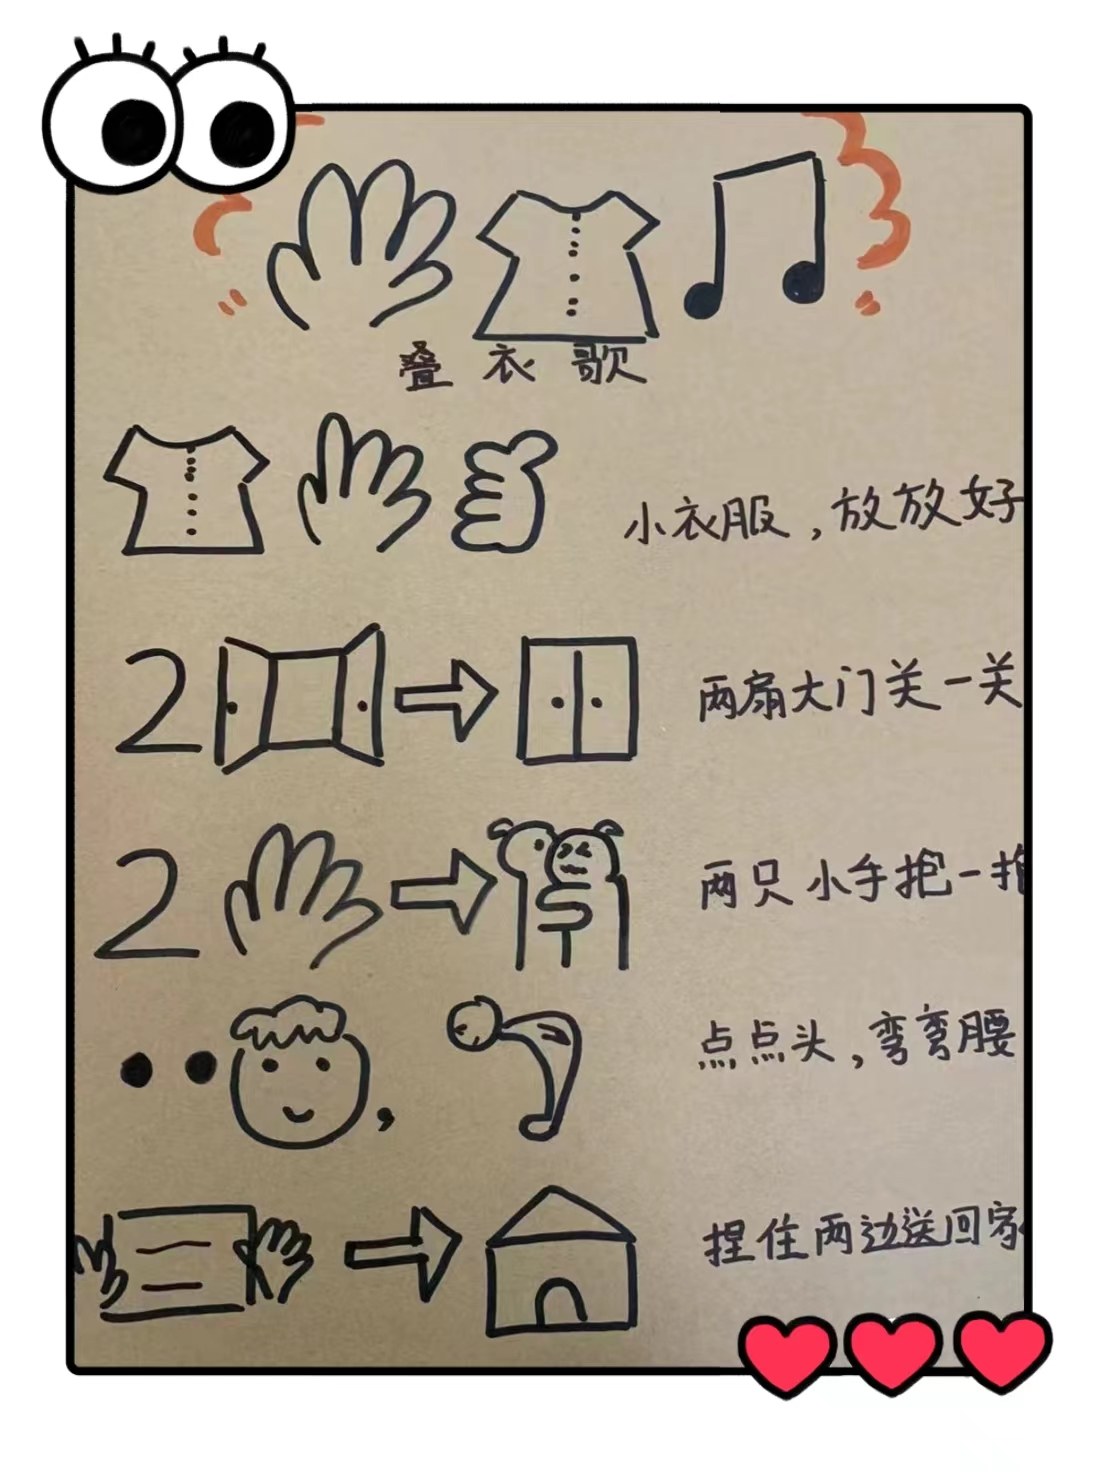 叠衣歌
小衣服，放放好
2
两扇大门关一关
2
两只小手抱一抱
点点头，弯弯腰
捏住两边送回家